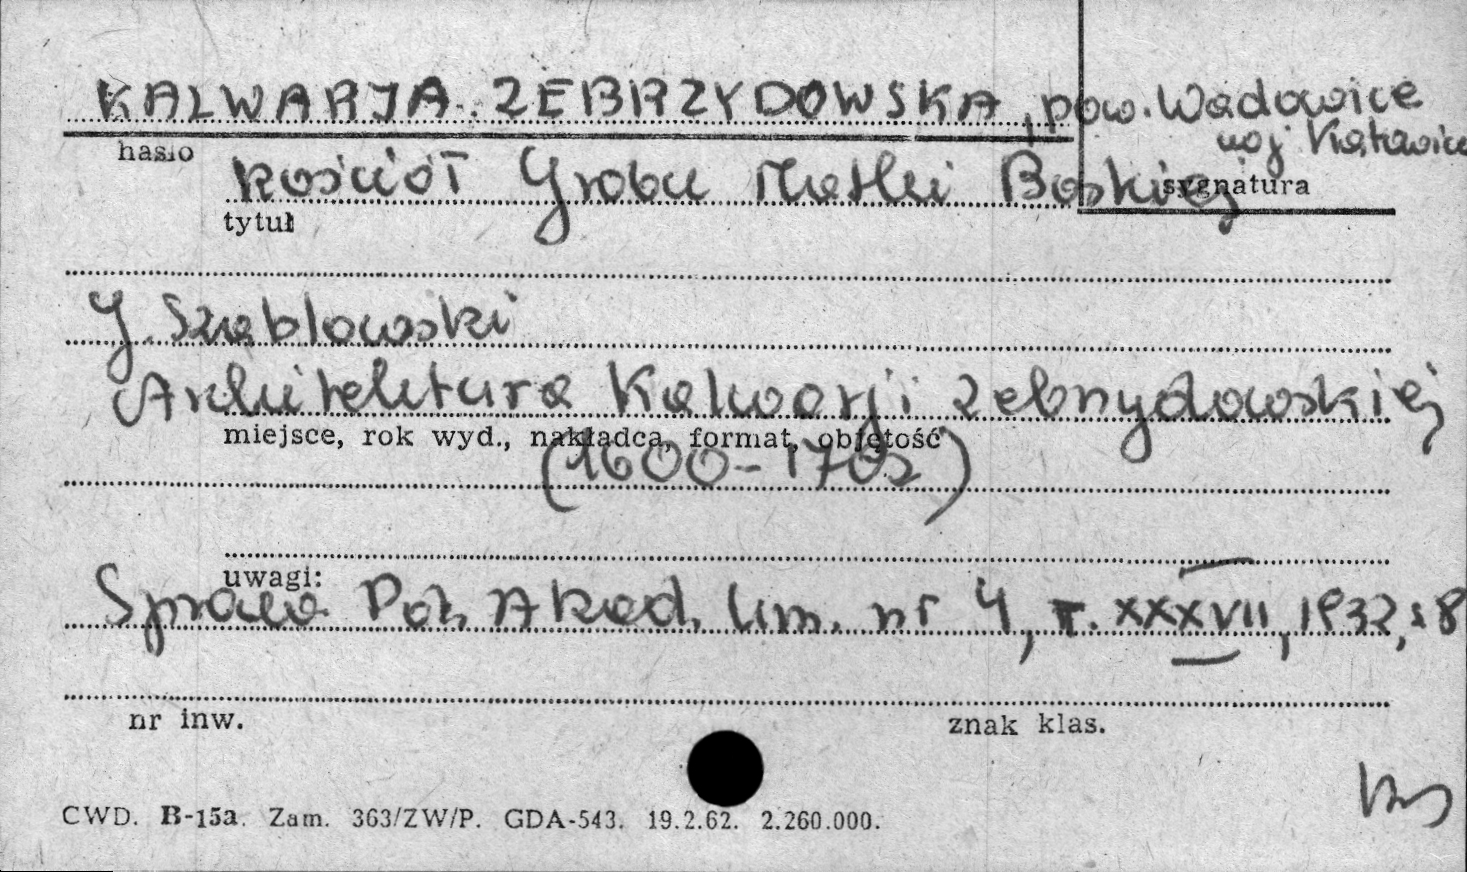 KALWARJA ZEBRZYDOWSKA, pow. Wadowice
woj Katowice
hasło
Kościół Grobu Matki Boskiej
sygnatura
tytuł
J. Szabłowski
Architektura Kalwarji Zebrzydowskiej
miejsce, rok wyd., nakładca, format, objętość
(1600-1702)
uwagi:
Sprawa Pol. Akad. Um. nr 4, T. XXXVII, 1932, s 8
nr inw.
znak klas.
CWD. B-15a. Zam. 363/ZW/P. GDA-543. 19.2.62. 2.260.000.